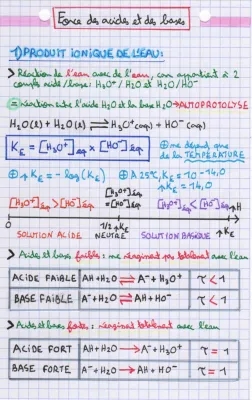 Force des acides et des bases
1) PRODUIT IONIQUE DE L'EAU:
> Réaction de l'eau avec de l'eau, car appartient à 2
couples acide/base: H₃O⁺/H2O et H2O/HO⁻
= Réaction entre l'acide H2O et la base H2O → AUTOPROTOLYSE
H2O(l) + H2O(l) ⇌ H3O⁺(aq) + HO⁻(aq)
KE = [H3O⁺]éq × [HO⁻]éq
⊕ ne dépend que
de la TEMPÉRATURE
⊕ pKE = -log(KE)
⊕ À 25°C, KE = 10^-14,0
pKE = 14,0
[H3O⁺]éq > [HO⁻]éq
[H3O⁺]éq
= [HO⁻]éq
[H3O⁺]éq < [HO⁻]éq
pH
0
1/2 pKE
pKE
SOLUTION ACIDE
NEUTRE
SOLUTION BASIQUE
> Acides et bases faibles: ne réagissent pas totalement avec l'eau
ACIDE FAIBLE AH+H2O ⇌ A⁻+H3O⁺ τ < 1
BASE FAIBLE A⁻+H2O ⇌ AH+HO⁻ τ < 1
> Acides et bases forts: réagissent totalement avec l'eau
ACIDE FORT AH+H2O → A⁻+H3O⁺ τ = 1
BASE FORTE A⁻+H2O → AH+HO⁻ τ = 1